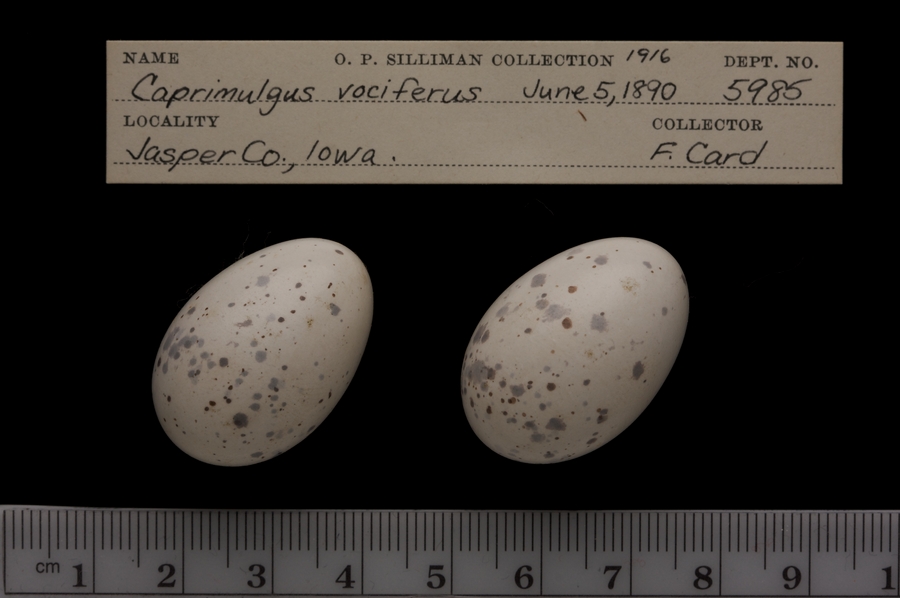 NAME O. P. SILLIMAN COLLECTION 1916 DEPT. NO.
Caprimulgus vociferus June 5, 1890 5985
LOCALITY COLLECTOR
Jasper Co., Iowa. F. Card
cm 1 2 3 4 5 6 7 8 9 1